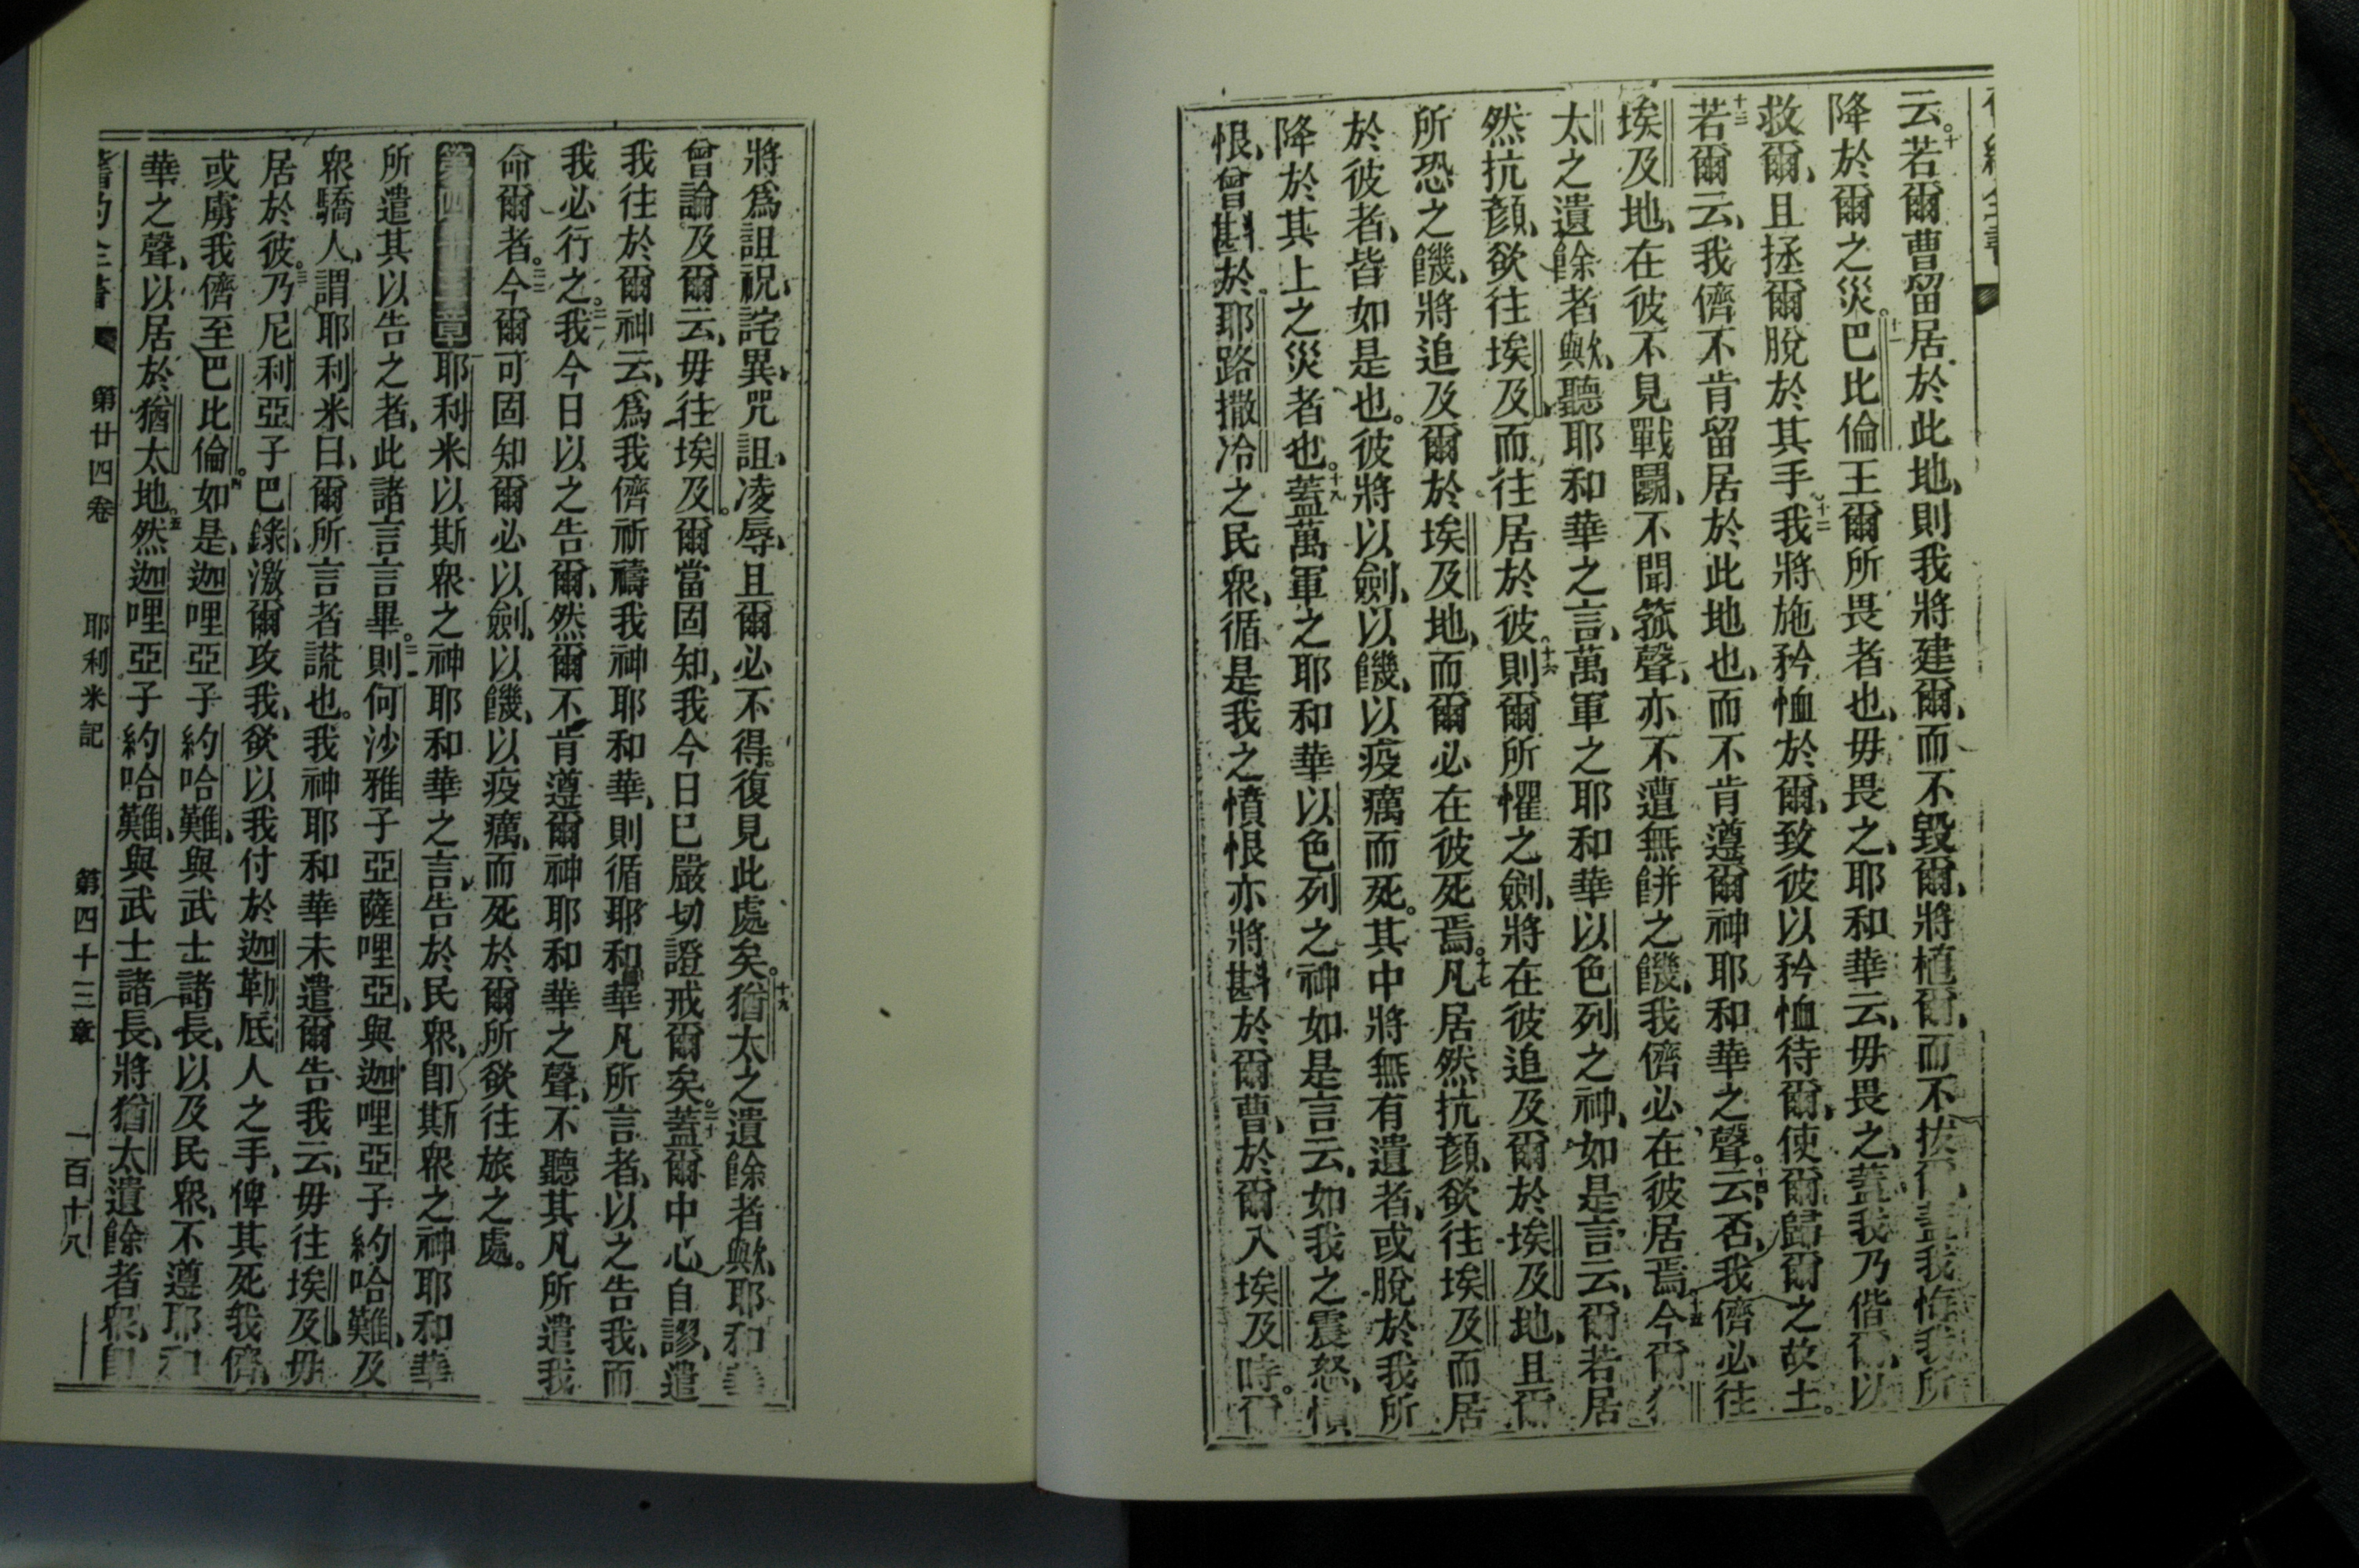 云十若爾曹留居於此地、則我將建爾、而不毀爾、將植爾、而不拔爾、蓋我悔我所
降於爾之災。十一巴比倫王爾所畏者也、毋畏之、耶和華云、毋畏之、蓋我乃偕爾、以
救爾、且拯爾脫於其手。十二我將施矜恤於爾、致彼以矜恤待爾、使爾歸爾之故土。
十三若爾云、我儕不肯留居於此地也、而不肯遵爾神耶和華之聲。十四云、否、我儕必往
埃及地、在彼不見戰鬬、不聞箛聲、亦不遭無餅之饑、我儕必在彼居焉。十五今爾
太之遺餘者歟、聽耶和華之言、萬軍之耶和華以色列之神、如是言云、爾若居
然抗顏、欲往埃及、而往居於彼、十六則爾所懼之劍、將在彼追及爾於埃及地、且爾
所恐之饑、將追及爾於埃及地、而爾必在彼死焉。十七凡居然抗顏、欲往埃及而居
於彼者、皆如是也。彼將以劍、以饑、以疫癘而死。其中將無有遺者、或脫於我所
降於其上之災者也。十八蓋萬軍之耶和華以色列之神如是言云、如我之震怒、憤
恨、曾斟於耶路撒冷之民衆、循是我之憤恨亦將斟於爾曹、於爾入埃及時。爾
將爲詛祝、詫異、咒詛、凌辱、且爾必不得復見此處矣。十九猶太之遺餘者歟、耶和華
曾論及爾云、毋往埃及。爾當固知、我今日已嚴切證戒爾矣。二十蓋爾中心自謬、遣
我往於爾神云、爲我儕祈禱我神耶和華、則循耶和華凡所言者、以之告我、而
我必行之。二一我今日以之告爾、然爾不肯遵爾神耶和華之聲、不聽其凡所遣我
命爾者。二二今爾可固知爾必以劍、以饑、以疫癘、而死於爾所欲往旅之處。
第四十三章 耶利米以斯衆之神耶和華之言、告於民衆、卽斯衆之神耶和華
所遣其以告之者、此諸言言畢。二則何沙雅子亞薩哩亞、與迦哩亞子約哈難、及
衆驕人、謂耶利米曰、爾所言者謊也。我神耶和華未遣爾告我云、毋往埃及、毋
居於彼。三乃尼利亞子巴錄、激爾攻我、欲以我付於迦勒底人之手、俾其死我儕、
或虜我儕至巴比倫。四如是、迦哩亞子約哈難、與武士諸長、以及民衆、不遵耶和
華之聲、以居於猶太地。五然迦哩亞子約哈難、與武士諸長、將猶太遺餘者衆、卽
舊約全書 第廿四卷 耶利米記 第四十三章 一百十八